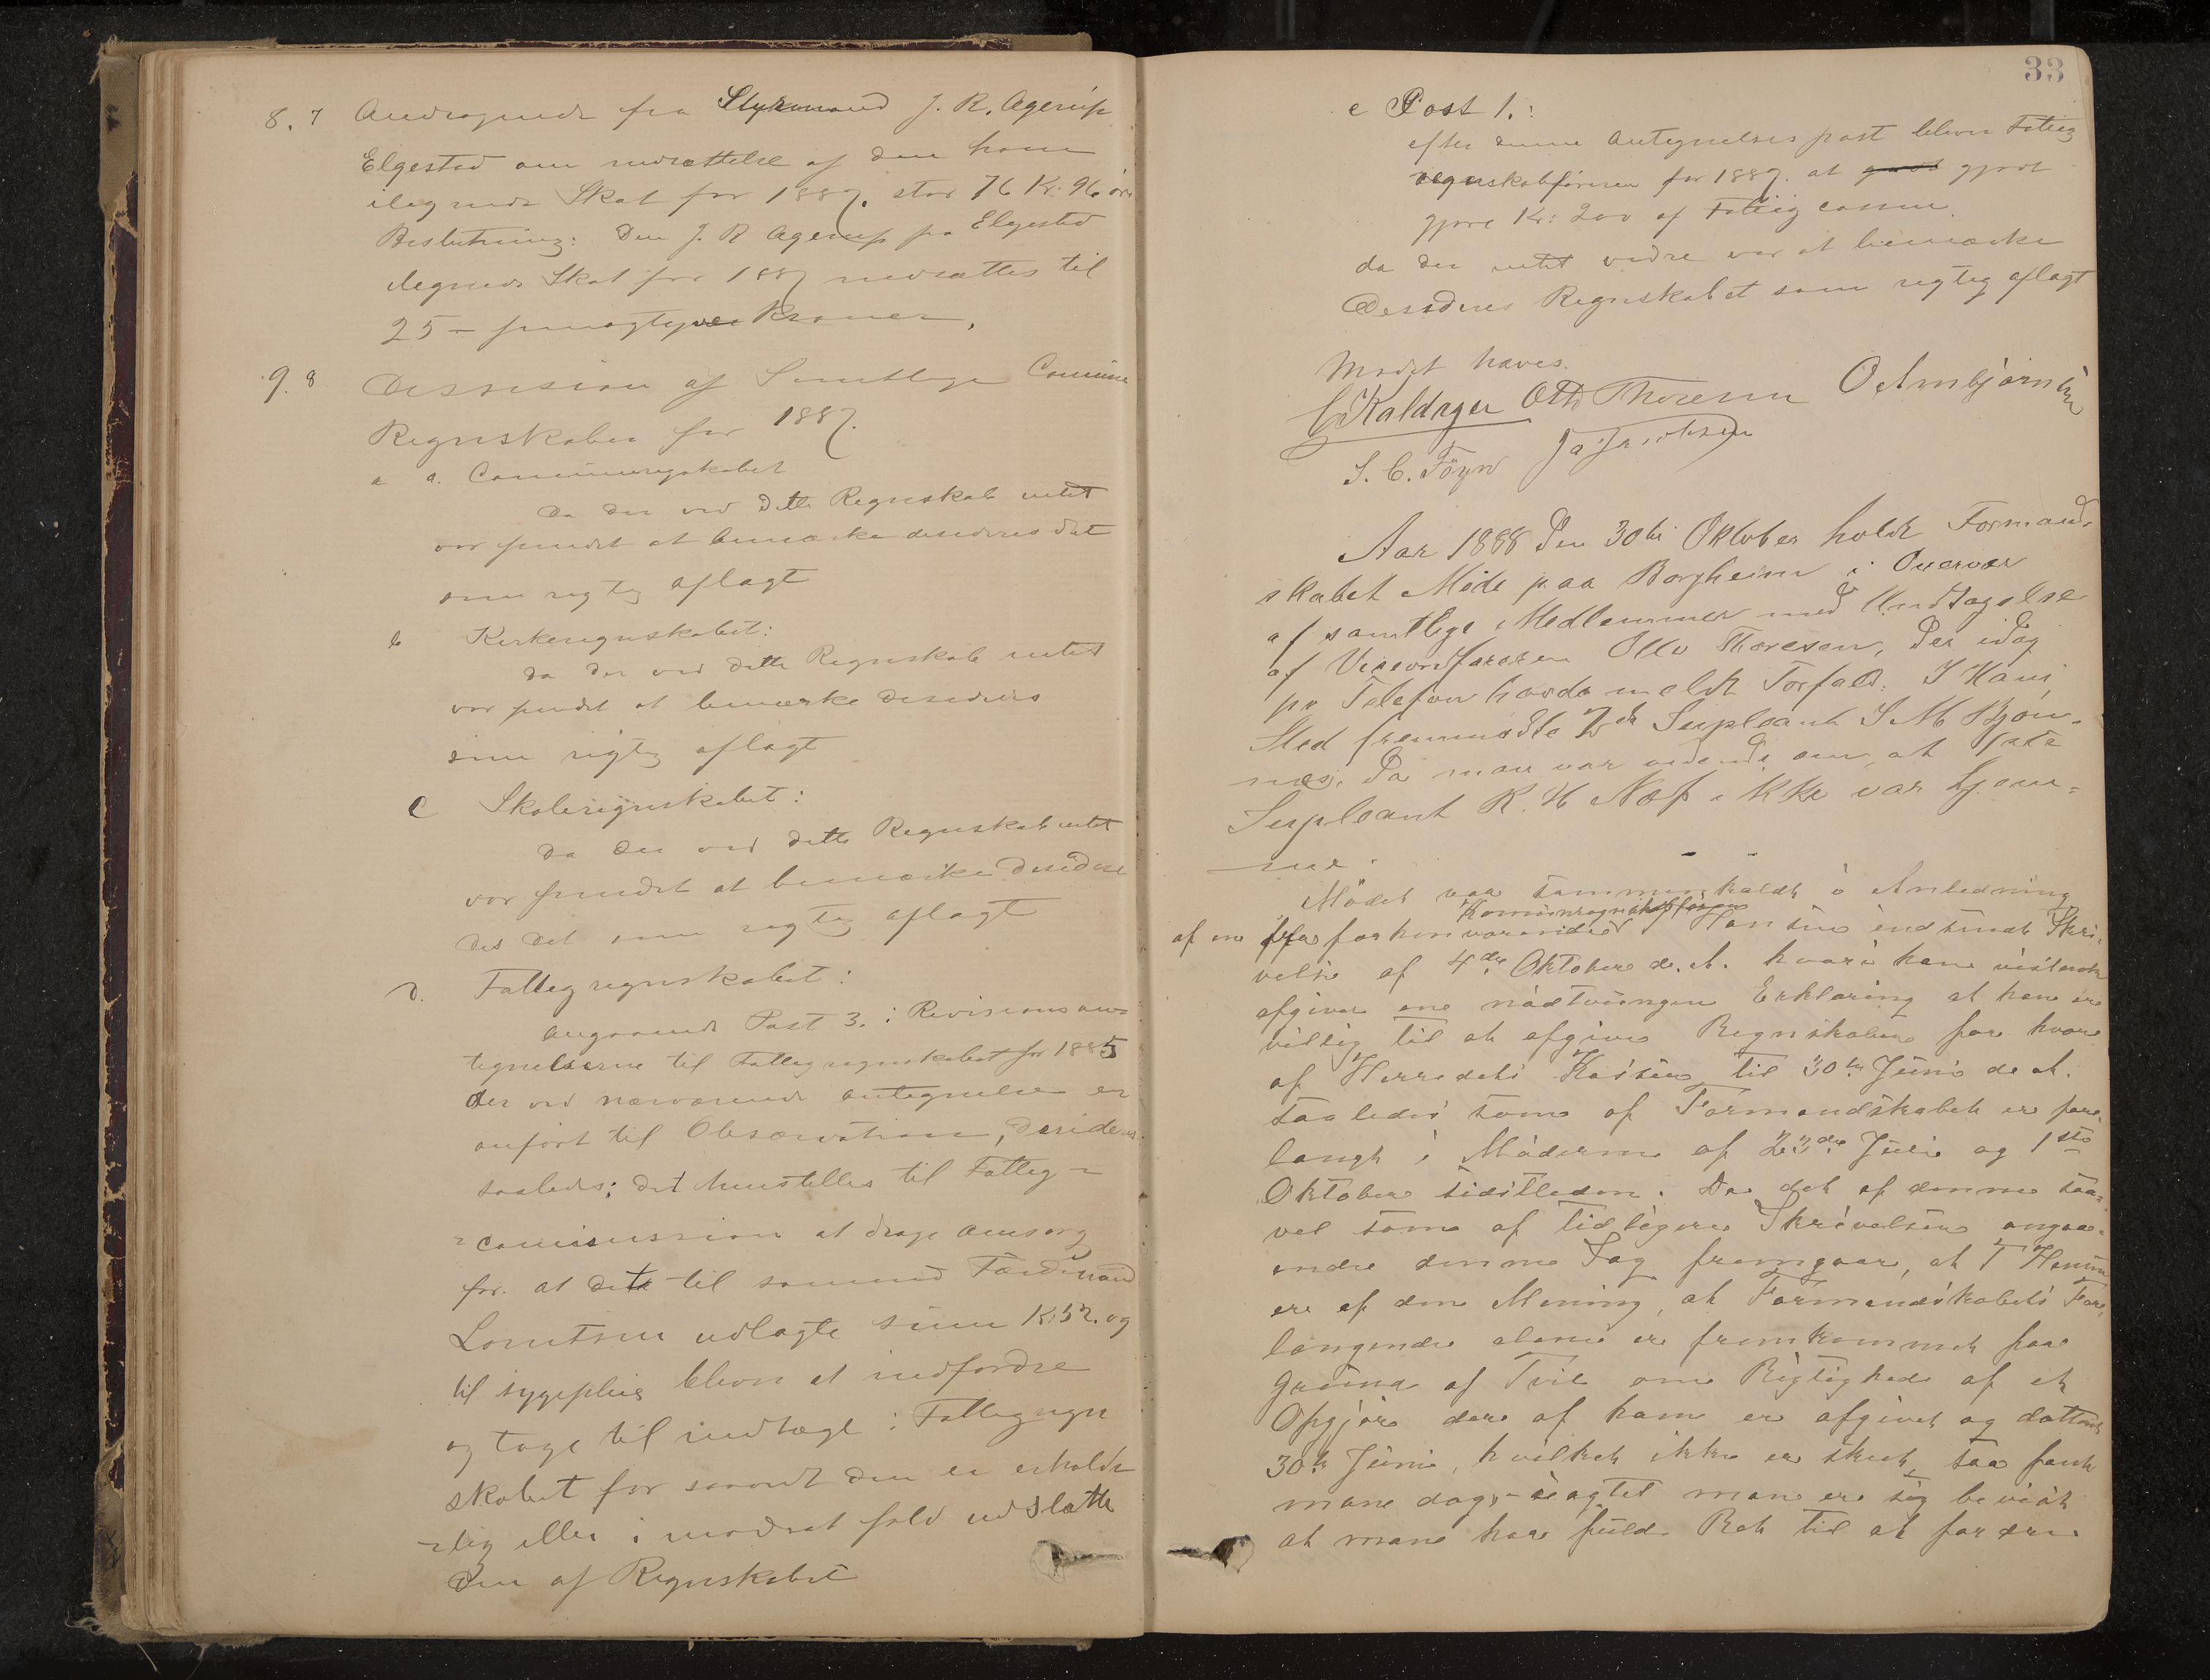 8.7 Andragende fra Styrmand J. R. Agerup
Elgested om nedsættelse af den ham
ilegnede Skat for 1887. stor 76 Kr. 96 øre
Beslutning: Den J. R Agerup fra Elgested
ilegnede Skat for 1887 nedsættes til
25 – femogtyve Kroner.
9.8 Desision af Samtlige Commune
Regnskaber for 1887.
a a. Communeregnskabet
Da der ved dette Regnskab intet
var fundet at bemærke desideres det
som rigtig aflagt
b Kirkeregnskabet:
da der ved dette Regnskab intet
var fundet at bemærke desideres
som rigtig aflagt
c Skoleregnskabet:
da der ved dette Regnskab intet
var fundet at bemærke deside
des det som rigtig aflagt
d. Fattegregnskabet:
angaaende Post 3. i Revisions an
tegnelserne til Fattegregnskabet for 1885
der ved nærværende antegnelse er
anført til Observation, desideres
saaledes: det henstilles til Fatteg-
-commission at drage omsorg
for at dette til sømand Færdinand
Lorntsen udlagte sum Kr. 52. og
til sygepleie bleven at indfordre
og tage til indtægt i Fattegregn
skabet for saavidt den er erholde
-lig eller i modsat fald udslætte
den af Regnskabet
33
e Post 1.:
efter denne Antegnelses post bliver Fatteg
regnskabsføreren for 1887. at gjort
gjøre Kr: 200 af Fattigcassen.
da der intet vidre var at bemærke
desideres Regnskabet som regtig aflagt
Mødet hæves.
C Kaldager Otto Thoresen O Arnbjørnsen
S. C. Föyn Ja Jacobsen
Aar 1888 den 30te Oktober holdt Formand-
skabet Møde paa Borgheim i Overvær
af samtlige Medlemmer med Undtagelse
af Viceordføreren Otto Thoresen, der idag
pr Telefon havde meldt Forfald. I Hans
Sted fremmødte 2den Supleant S M Bjøn-
nes. Da man var vidende om, at 1ste
Supleant R. H Næs ikke var hjem-
me.
Mødet var sammenkaldt i Anledning
Kommuneregnskabsfører
af en fra forhenværende Hansen indsendt Skri-
velse af 4de Oktober d. A. hvori han vistnok
afgiver en nødtvungen Erklæring at han er
villig til at afgive Regnskaber for hver
af Herredets Kasser til 30te Juni d. A.
saaledes som af Formandskabet er for-
langt i Møderne af 23de Juli og 1ste
Oktober sidstleden. Da det af denne saa-
vel som af tidligere Skrivelser angaa-
ende denne Sag fremgaar, at T Hansen
er af den Mening, at Formandskabets For-
langende alene er fremkommet paa
Grund af Tvil om Rigtighed af et
Opgjør der af ham er afgivet og datteret
30te Juni, hvilket ikke er skeet, saa fandt
man dog, uagtet man er sig bevist
at man har fuld Ret til at fordre